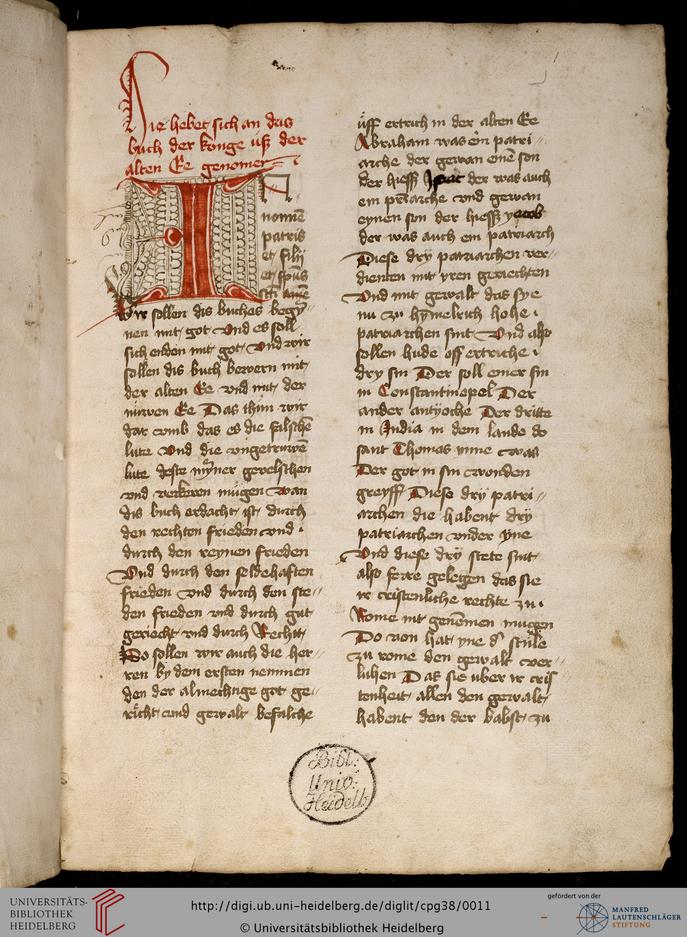 Hie hebet sich an das
buch der konge vß der
alten Ee genomen
IN
nomīe
patris
et filij
et sp̄us
sc̄ti amē
Wir sollen dis buches begÿ⸗
nen mit got Vnd es soll
sich enden mit got Vnd wir
sollen dis buch bewern mit
der alten Ee vnd mit der
nuwen Ee Das thun wir
dar vmb das es die falschē
lute Vnd die vngetruwē
lute deste mÿner gevelschen
vnd verkeren mügen wan
dis buch erdacht ist durch
den rechten frieden vnd
durch den reynen frieden
Vnd durch den seldehafften
frieden vnd durch den ste⸗
den frieden vnd durch gut
geriecht vnd durch Recht
So sollen wir auch die her⸗
ren bÿ dem ersten nemmen
den der almechtige got ge⸗
richt vnd gewalt befalche
vff ertrich in der alten Ee
Abraham was ein patri⸗
arche der gewan eine son
der hieß Ysaac der was auch
ein patriarche vnd gewan
eynen son der hieß yacob
der was auch ein patriarch
Diese dry patriarchen ver⸗
dienten mit yren gerechten
Vnd mit gewalt das sye
nu zu hymelrich hohe
patriarchen sint Vnd also
sollen hude off ertriche
dry sin Der soll einer sin
in Constantinopel Der
ander antyoche Der dritte
in India in dem lande do
sant Thomas inne was
Der got in sin wonden
greyff Diese dry patri⸗
archen die habent dry
patriarchen vnder yne
Vnd diese dry stete sint
also ferre gelegen das sie
ir cristenliche rechte zu
Rome nit genemen mugen
Do von hat yne d' stule
zu rome den gewalt ver⸗
luhen Das sie uber ir cris
tenheit allen den gewalt
habent den der babst zu
Bibl:
Univ:
Heidelb
UNIVERSITÄTS-
BIBLIOTHEK
HEIDELBERG
http://digi.ub.uni-heidelberg.de/diglit/cpg38/0011
© Universitätsbibliothek Heidelberg
gefördert von der
MANFRED
LAUTENSCHLÄGER
STIFTUNG